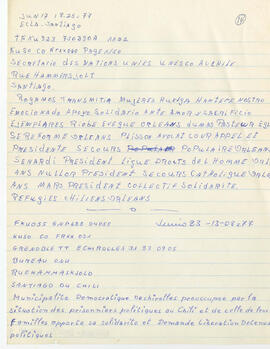 JUN 17 19.25.77
ECLA. Santiago
14
TRKU323 730230A 1022
KUSO CO
Secretario des Nations Unies UNESCO AUCHILE
RUE HAMMINS JOLT
Santiago.
Rogamos TRANSMITIR Mujeres Huelga Hambre nostro
Emocionado Apoyo Solidario ANTE AMOR y SACRIFICIO
EJEMPLARES EVEQUE ORLEANS PASTEUR
SE REFORME ORLEANS PLISSON AVOCAT COUR APPEL ET
PRESIDENTE SECOURS POPULAIRE ORLEANS
SENARDI PRESIDENT LIGUE DROITS DEL HOMME ORLE
ANS NULLOR PRESIDENT SECOURS CATHOLIQUE ORLE
ANS MARS PRESIDENT COLLECTIF SOLIDARITE
REFUGIES CHILIENS ORLEANS
Junio 23-13-0827
KUSO CO
GRENOBLE TT ECHIROLLES 31 23 0905
BUREAU ONU
SANTIAGO DU CHILI
Municipalite Democratique Dechirolles preoccupee par la
situation des prisonniers politiques au Chili et de celle de leur
familles apporte sa solidarite et Demande Liberation Detenus
politiques